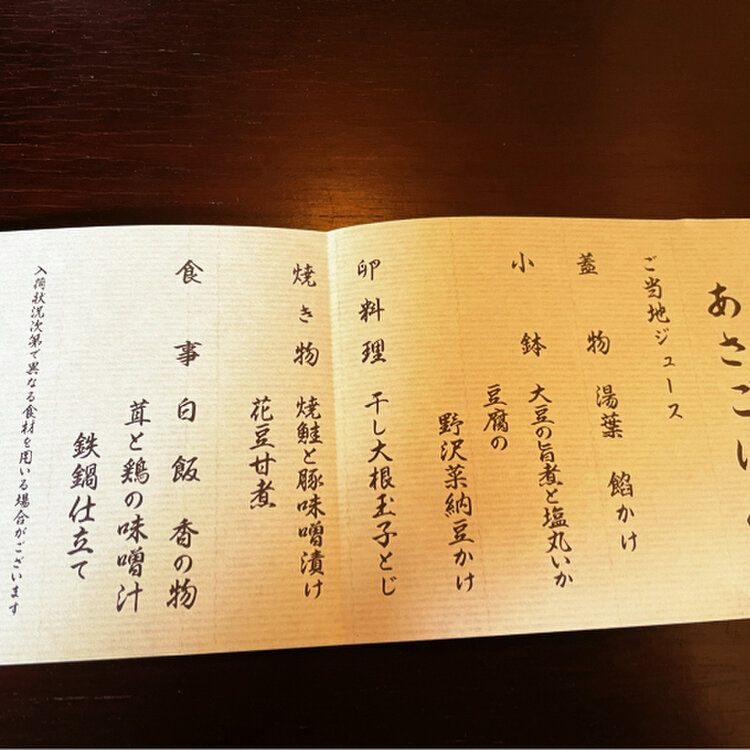 あさご
ご当地ジュース
蓋物 湯葉 餡かけ
小鉢 大豆の旨煮と塩丸いか
豆腐の
野沢菜納豆かけ
卵料理 干し大根玉子とじ
焼き物 焼鮭と豚味噌漬け
花豆甘煮
食事 白飯 香の物
茸と鶏の味噌汁
鉄鍋仕立て
入荷状況次第で異なる食材を用いる場合がございます